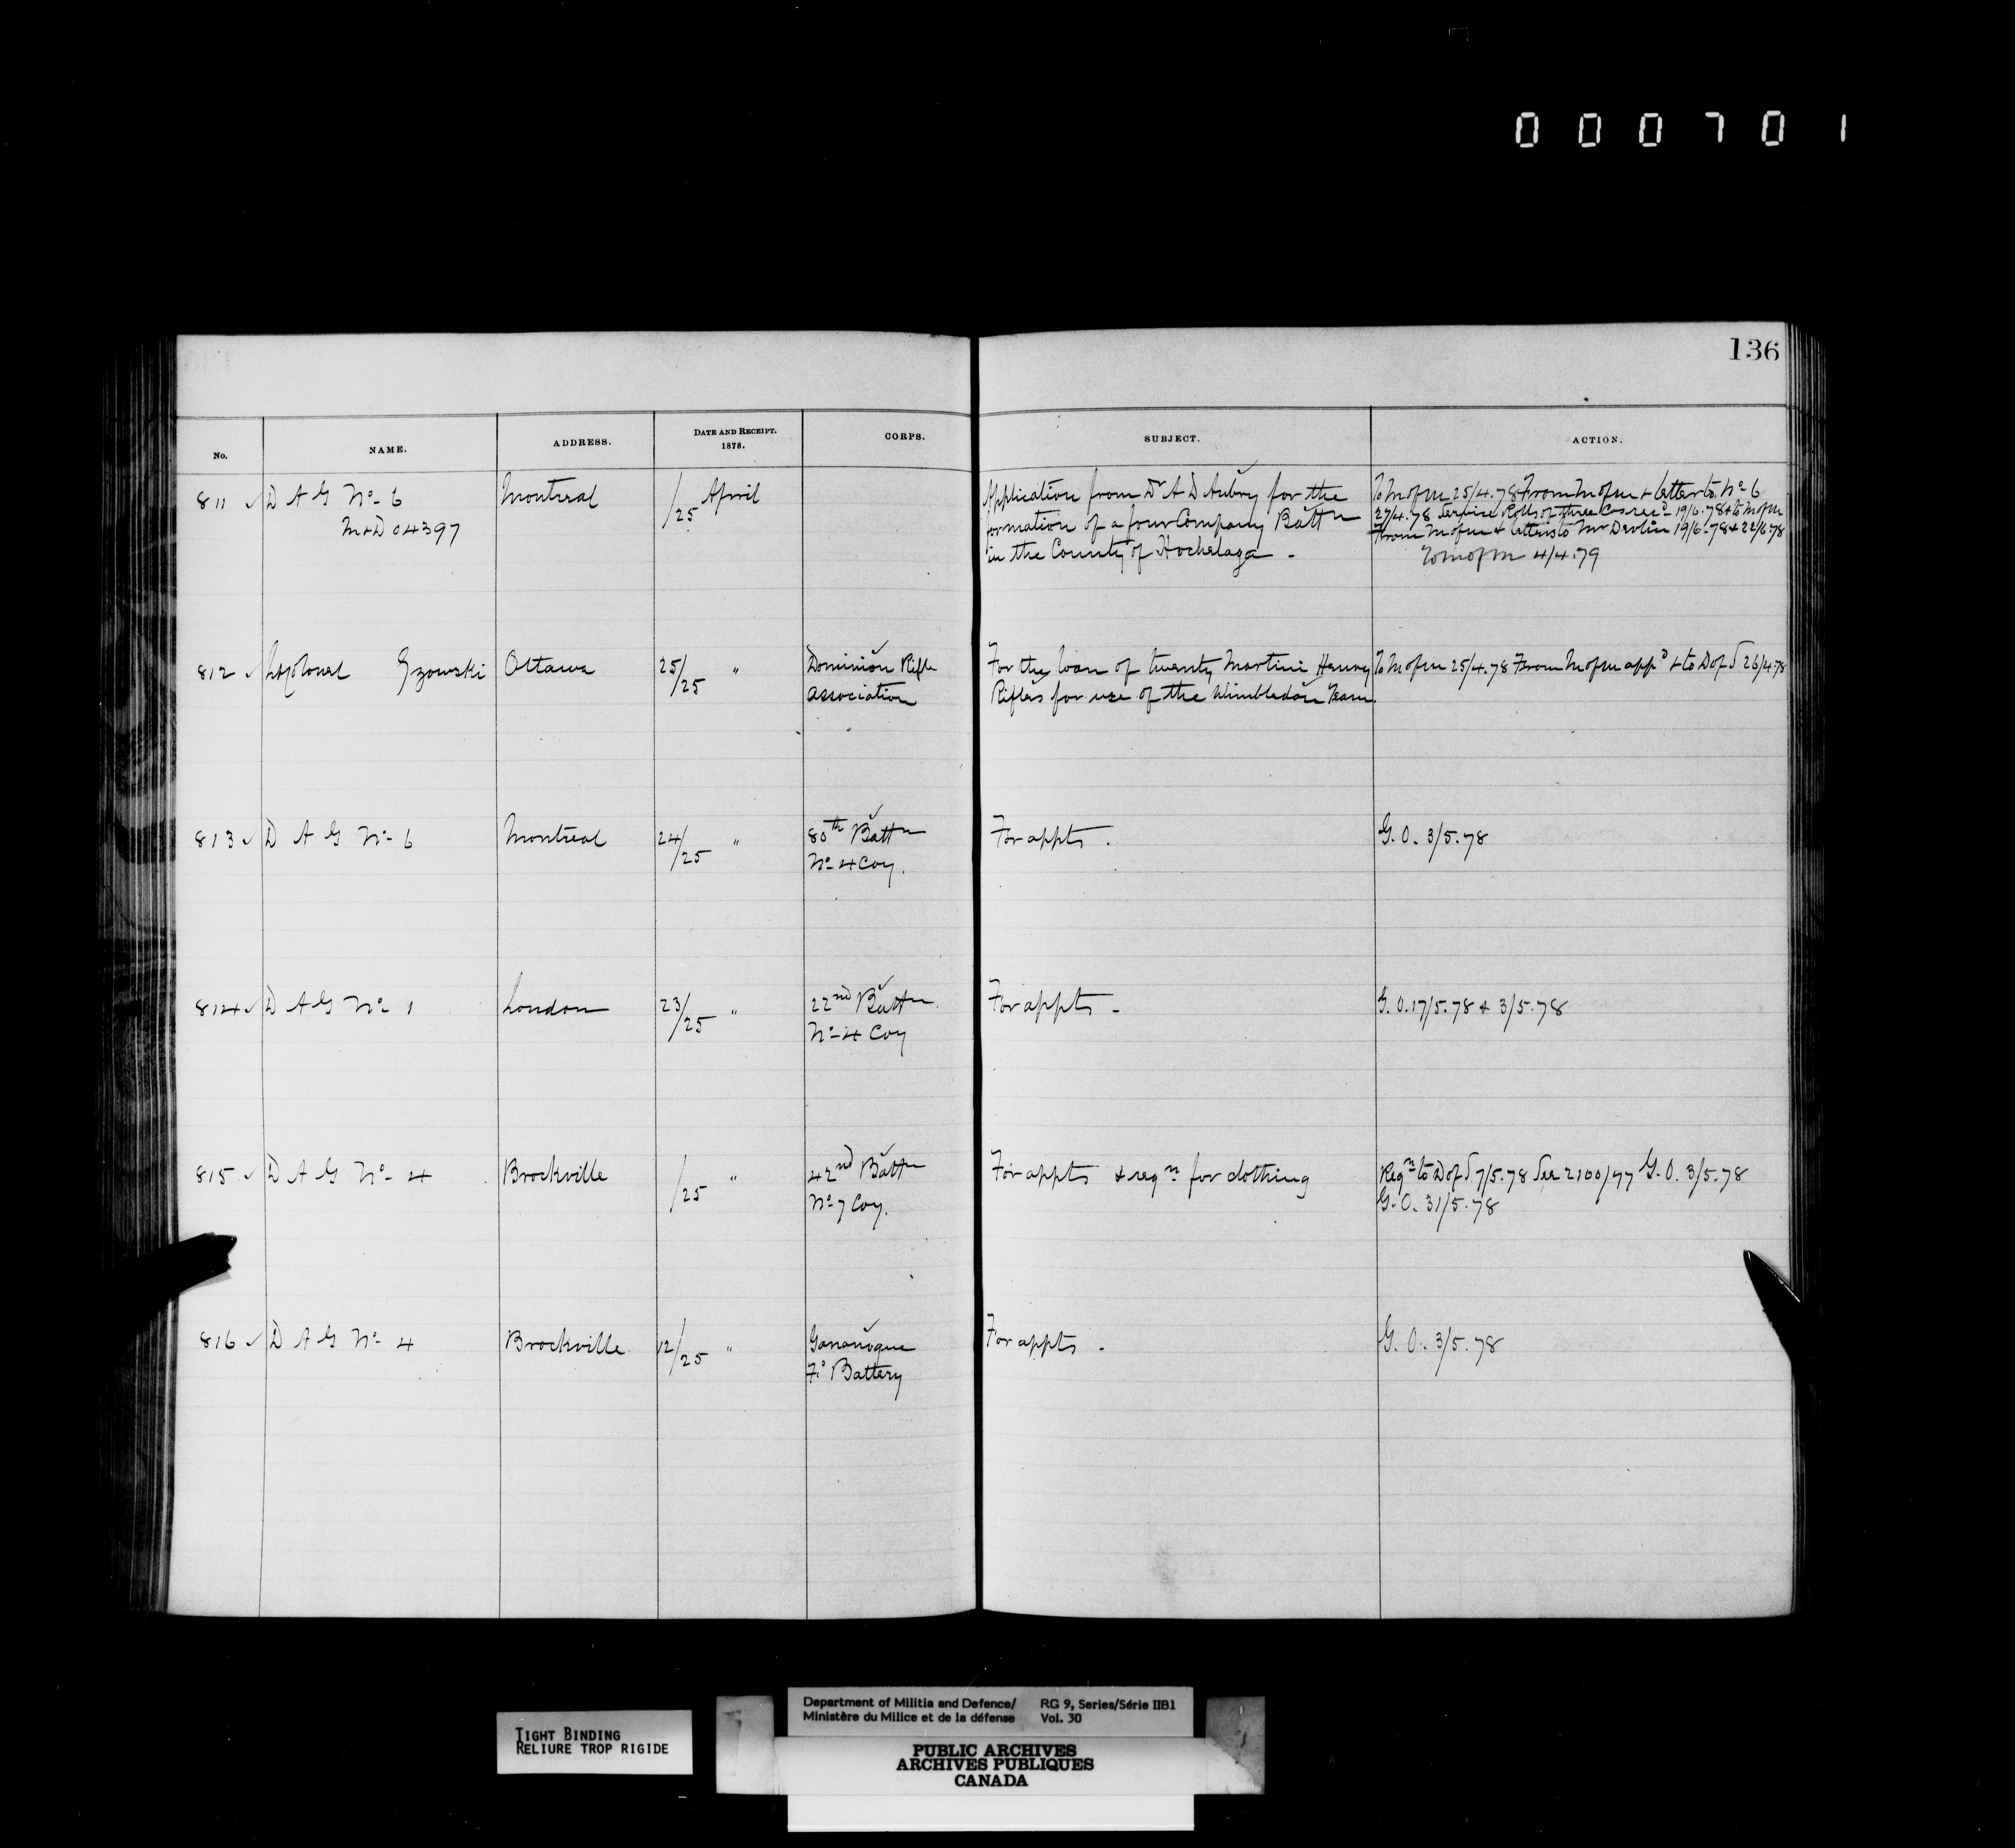 000701
136
No. NAME. ADDRESS. DATE AND RECEIPT. 1878. CORPS. SUBJECT. ACTION.
811 ✓ D A G No- 6 Montreal /25 April Application from Dr A D Aubry for the To M of M 25/4.78 From M of M & letter to No 6
M&D 04397 formation of a four Company Battn 27/4.78 Service Rolls of three Cos recd 19/6.78 & to M of M
in the County of Hochelaga - From M of M & letters to Mr Devlin 19/6-78 & 22/6.78
To M of M 4/4.79
812 ✓ Lt Colonel Gzowski Ottawa 25/25 " Dominion Rifle For the loan of twenty Martini Henry To M of M 25/4.78 From M of M appd & to D of S 26/4.78
Association Rifles for use of the Wimbledon Team.
813 ✓ D A G No- 6 Montreal 24/25 " 80th Battn For appts. G.O. 3/5.78
No- 4 Coy.
814 ✓ D A G No- 1 London 23/25 " 22nd Battn For appts - G.O. 17/5.78 & 3/5.78
No- 4 Coy
815 ✓ D A G No- 4 Brockville /25 " 42nd Battn For appts & reqn for clothing Reqn to D of S 7/5.78 See 2100/77 G.O. 3/5.78
No- 7 Coy. G.O. 31/5.78
816 ✓ D A G No- 4 Brockville 12/25 " Gananoque For appts. G.O. 3/5.78
Fd Battery
TIGHT BINDING
RELIURE TROP RIGIDE
Department of Militia and Defence/ RG 9, Series/Série IIB1
Ministère du Milice et de la défense Vol. 30
PUBLIC ARCHIVES
ARCHIVES PUBLIQUES
CANADA